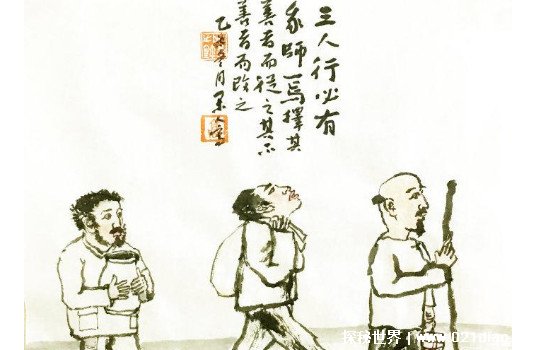 三人行必有
我師焉擇其
善者而從之其不
善者而之
冬月
探秘世界